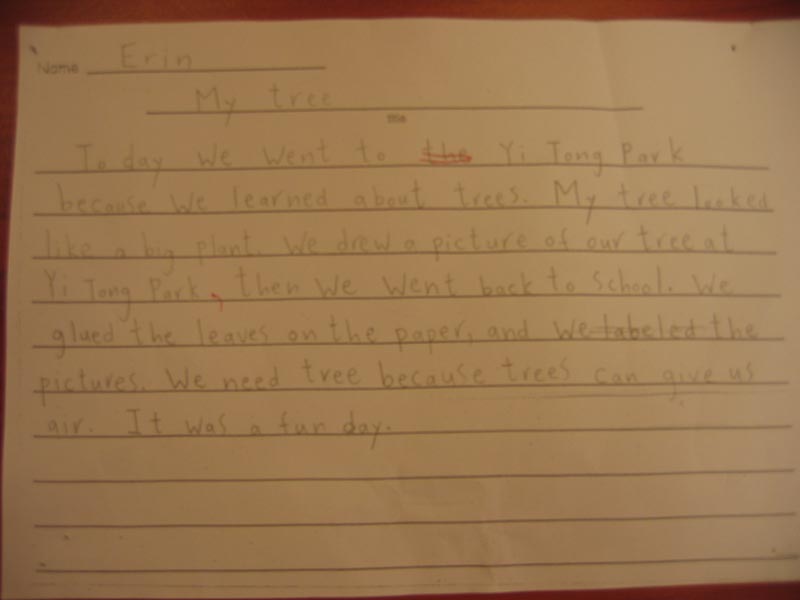 Name Erin
My tree
Title
Today we went to the Yi Tong Park
because we learned about trees. My tree looked
like a big plant. We drew a picture of our tree at
Yi Tong Park, then we went back to school. We
glued the leaves on the paper, and we labeled the
pictures. We need tree because trees can give us
air. It was a fun day.